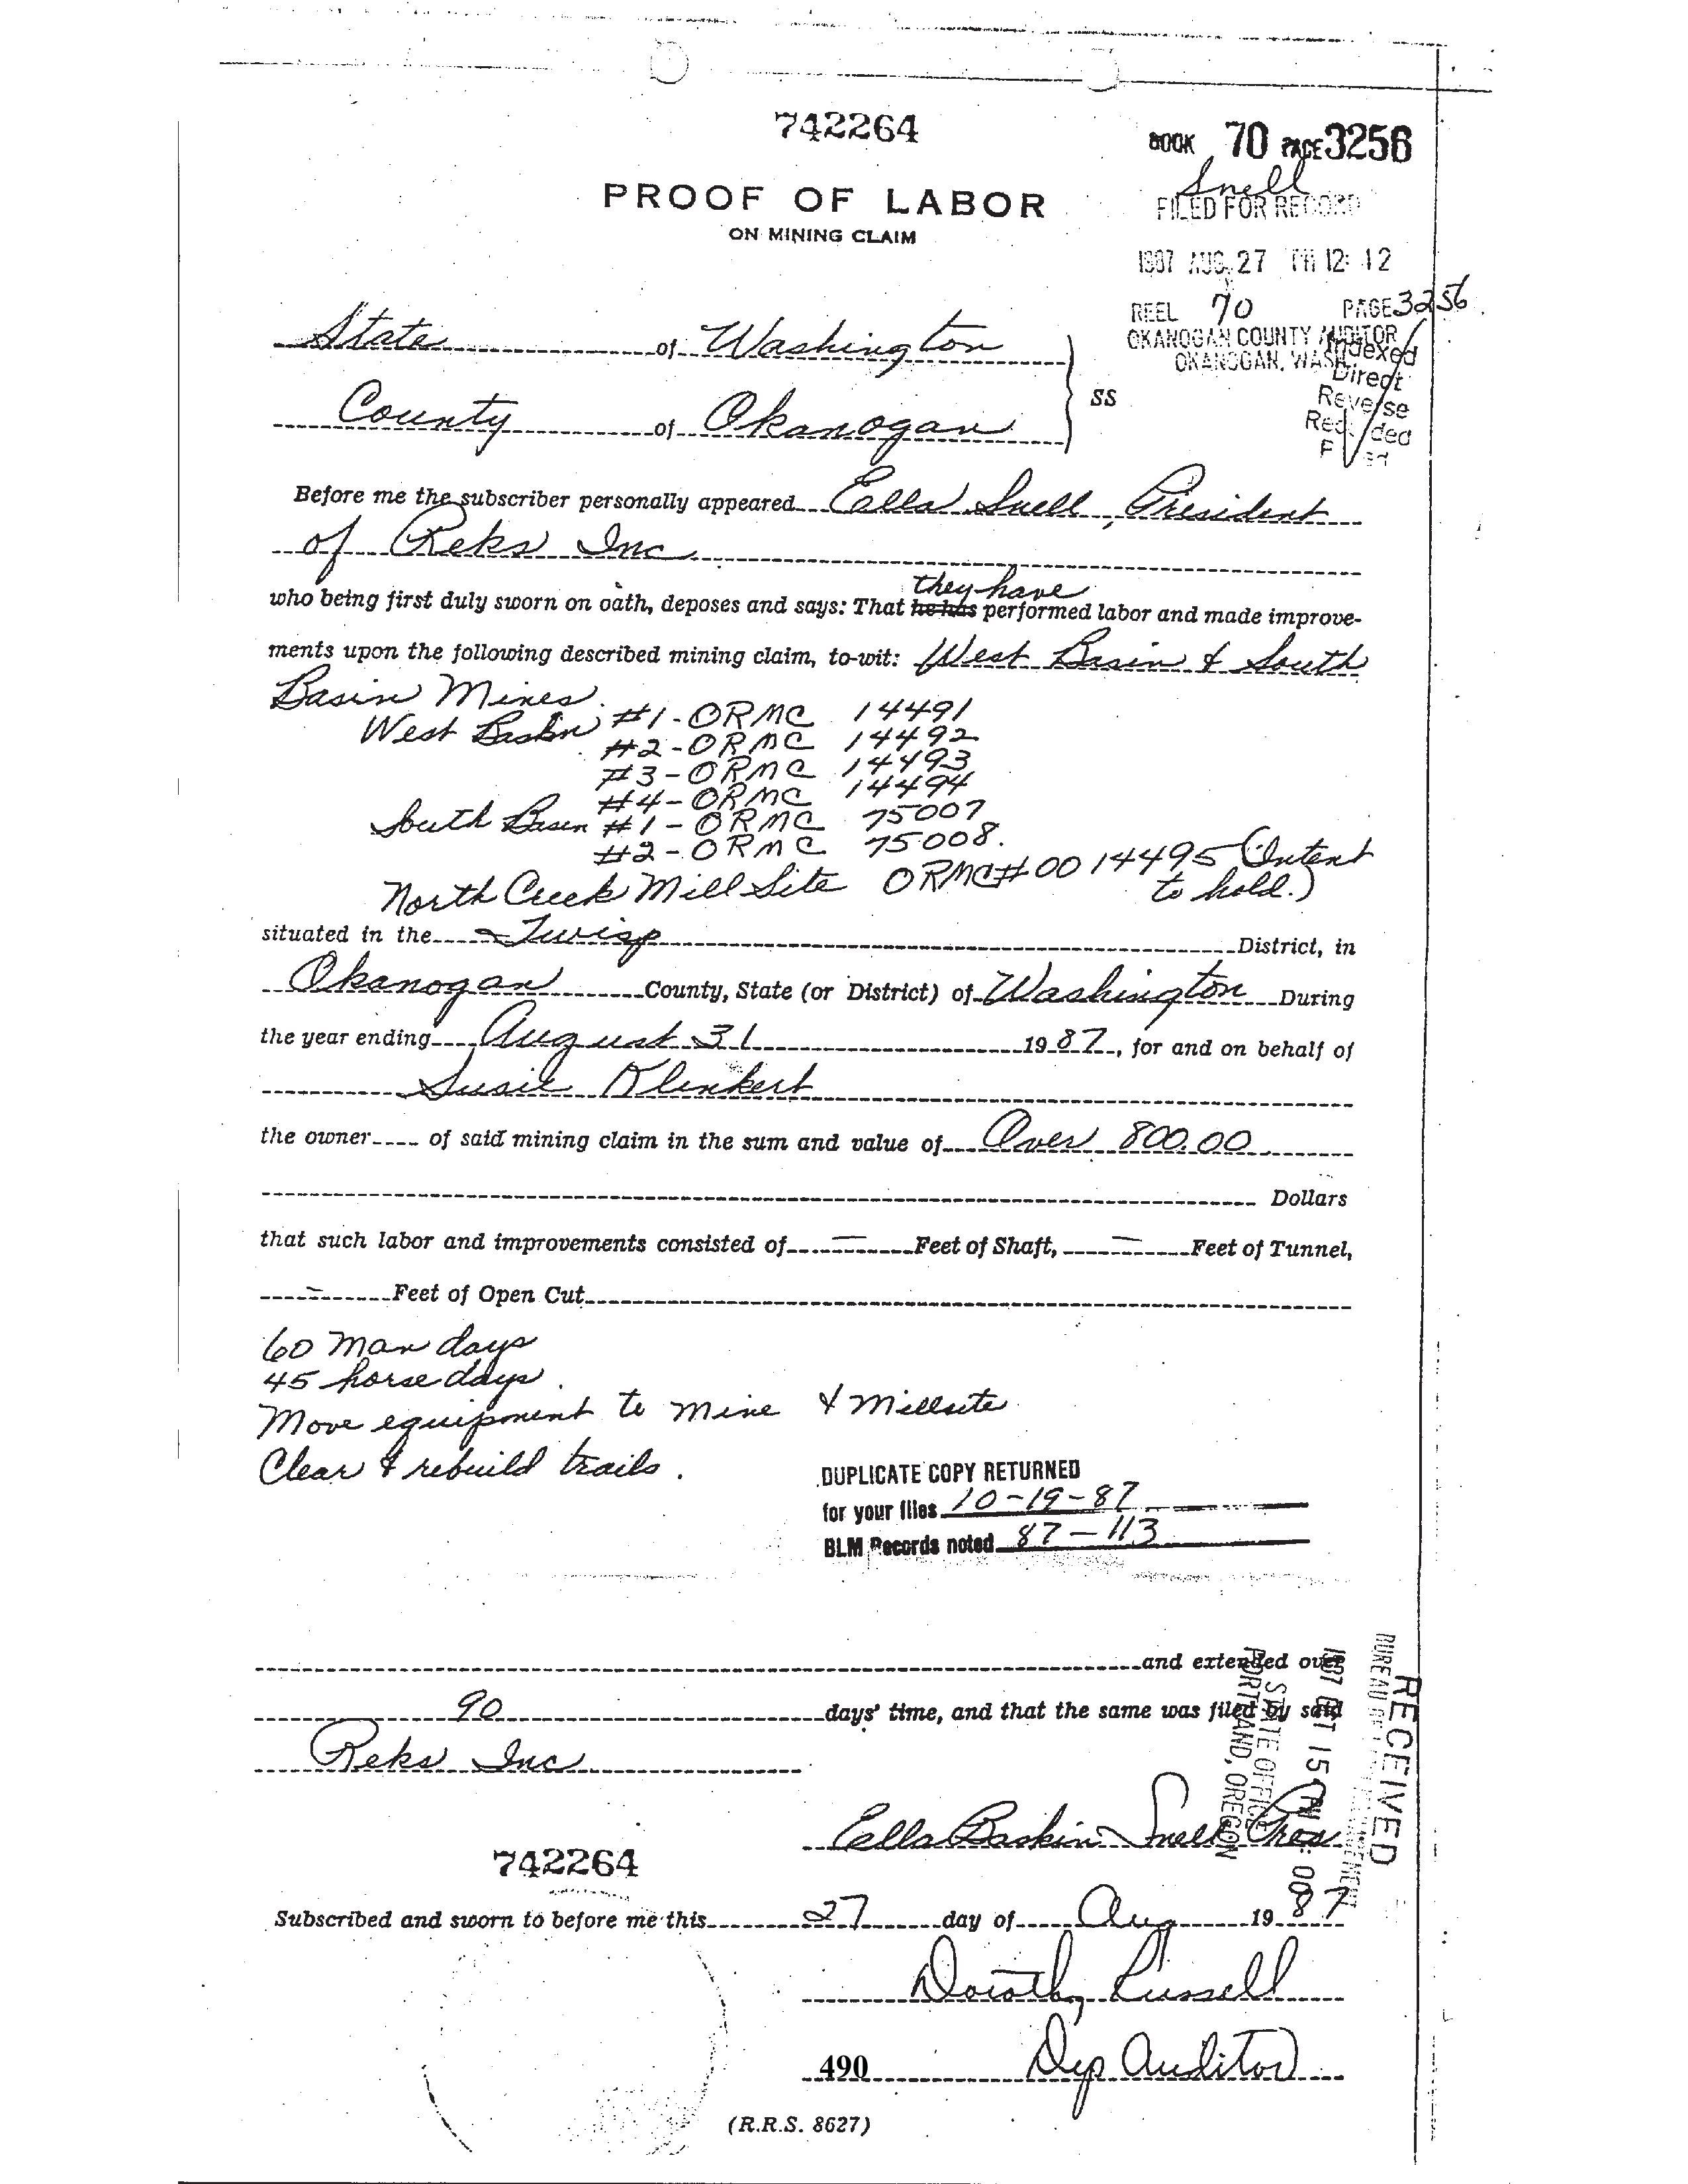 742264
BOOK 70 PAGE 3256
Snell
FILED FOR RECORD
PROOF OF LABOR
ON MINING CLAIM
1987 AUG 27 PM 12: 12
REEL 70 PAGE 3256
OKANOGAN COUNTY AUDITOR
OKANOGAN, WASH.
Indexed
Direct
Reverse
State of Washington
County of Okanogan
SS
Before me the subscriber personally appeared Ella Snell, President
of Reks Inc
they have
who being first duly sworn on oath, deposes and says: That he has performed labor and made improve-
ments upon the following described mining claim, to-wit: West Basin & South
Basin Mines.
West Basin #1-ORMC 14491
#2-ORMC 14492
#3-ORMC 14493
#4-ORMC 14494
South Basin #1-ORMC 75007
#2-ORMC 75008.
North Creek Mill Site ORMC#0014495 (Intent
to hold.)
situated in the Twisp District, in
Okanogan County, State (or District) of Washington During
the year ending August 31 1987, for and on behalf of
Susie Klinkert
the owner of said mining claim in the sum and value of Over 800.00
Dollars
that such labor and improvements consisted of — Feet of Shaft, — Feet of Tunnel,
— Feet of Open Cut
60 Man days
45 horse days.
Move equipment to mine & Millsite
Clear & rebuild trails.
DUPLICATE COPY RETURNED
for your files 10-19-87
BLM Records noted 87-113
and extended over
90 days' time, and that the same was filed by said
Reks Inc
RECEIVED
STATE OFFICE
PORTLAND, OREGON
Ella Baskin Snell Pres
742264
Subscribed and sworn to before me this 27 day of Aug 1987
Dorothy Russell
490 Dep Auditor
(R.R.S. 8627)